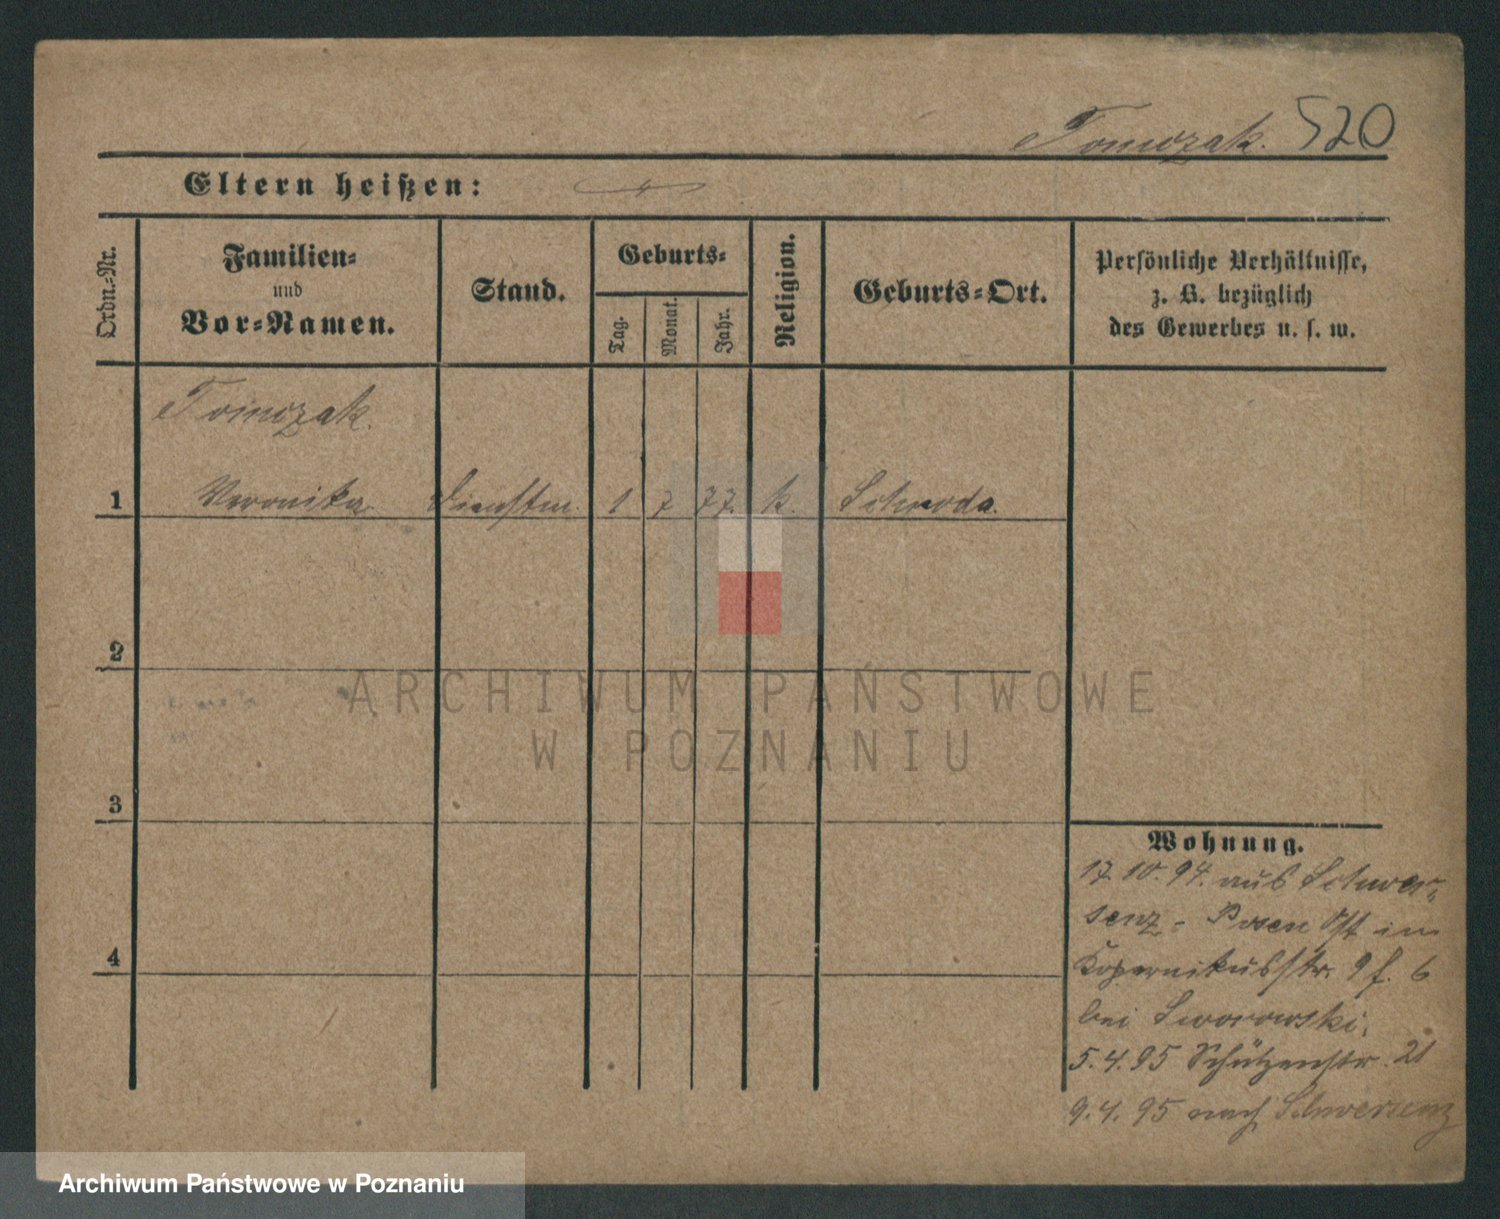 Tomczak. 520
Eltern heißen:
Ordn.-Nr.
Familien-
und
Vor-Namen.
Stand.
Geburts-
Tag.
Monat.
Jahr.
Religion.
Geburts-Ort.
Persönliche Verhältnisse,
z. B. bezüglich
des Gewerbes u. s. w.
Tomczak.
1 Veronika Dienstm. 1 7 77. k. Schroda.
2
3
4
Wohnung.
17.10.94. aus Schwer-
senz - Posen Ost in
Kopernikusstr. 9 f. 6
bei Sworowski.
5.4.95 Schützenstr. 21
9.4.95 nach Schwersenz
ARCHIWUM PAŃSTWOWE
W POZNANIU
Archiwum Państwowe w Poznaniu